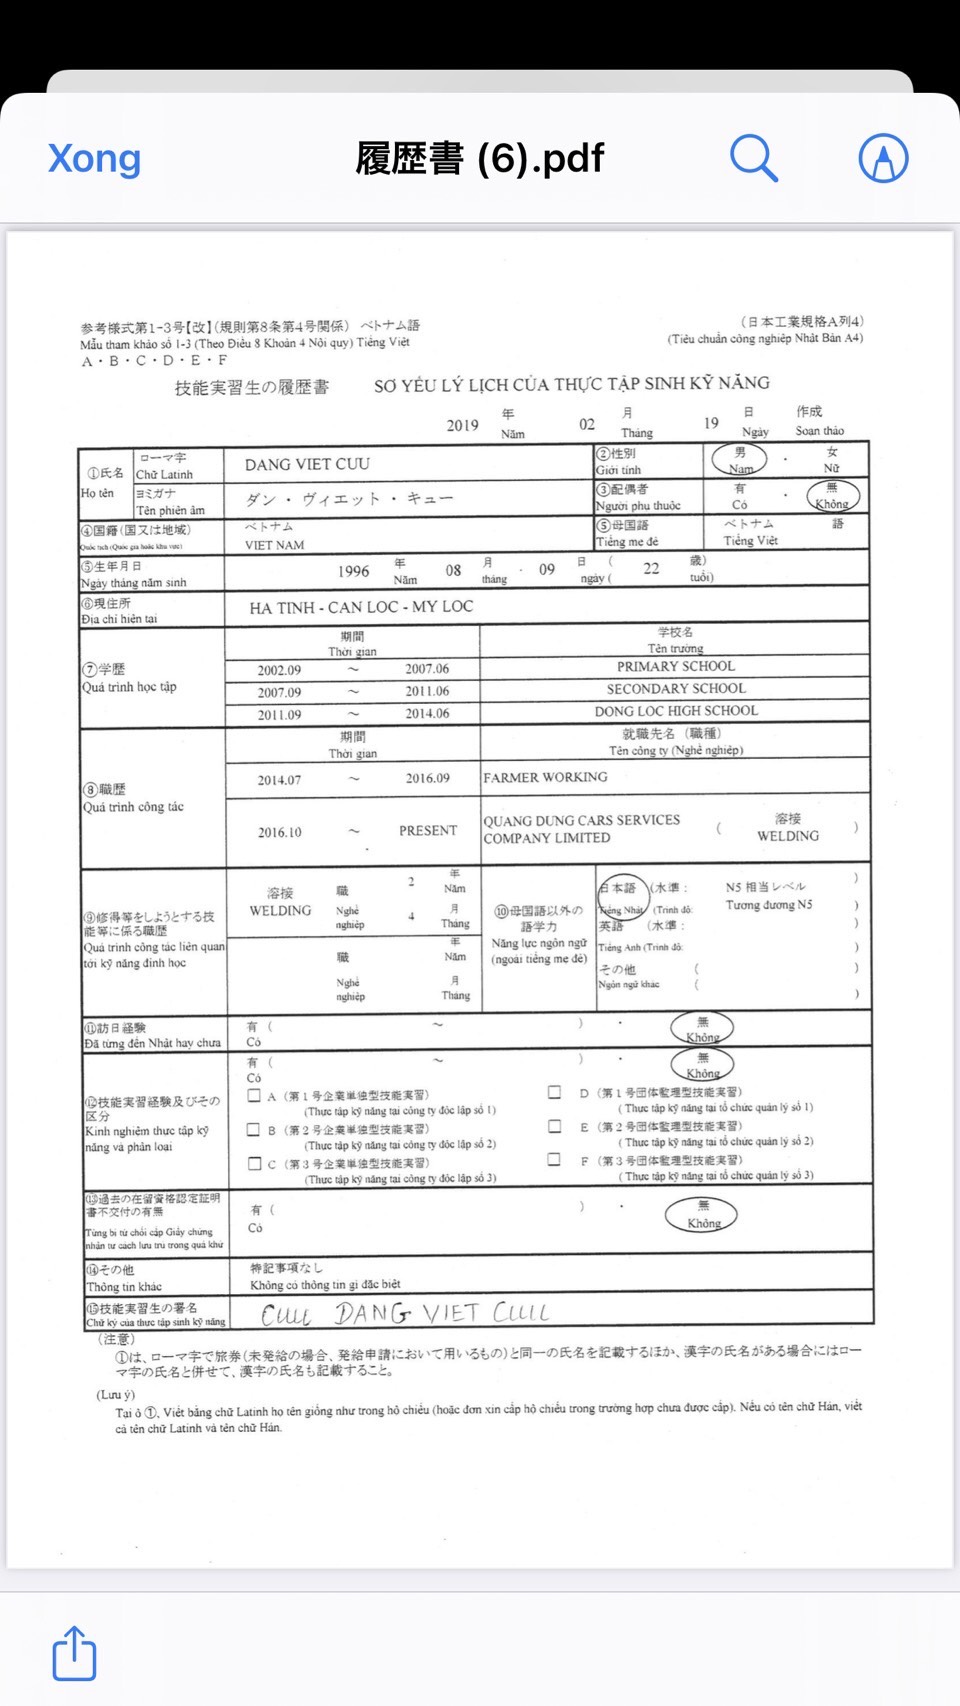 Xong
履歴書 (6).pdf
参考様式第1-3号【改】(規則第8条第4号関係) ベトナム語
(日本工業規格A列4)
Mẫu tham khảo số 1-3 (Theo Điều 8 Khoản 4 Nội quy) Tiếng Việt
(Tiêu chuẩn công nghiệp Nhật Bản A4)
A・B・C・D・E・F
技能実習生の履歴書 SƠ YẾU LÝ LỊCH CỦA THỰC TẬP SINH KỸ NĂNG
2019 年 02 月 19 日 作成
Năm Tháng Ngày Soạn thảo
①氏名
Họ tên
ローマ字
Chữ Latinh
DANG VIET CUU
②性別
Giới tính
男 ・ 女
Nam Nữ
ヨミガナ
Tên phiên âm
ダン・ヴィエット・キュー
③配偶者
Người phụ thuộc
有 ・ 無
Có Không
④国籍(国又は地域)
Quốc tịch (Quốc gia hoặc khu vực)
ベトナム
VIET NAM
⑤母国語
Tiếng mẹ đẻ
ベトナム 語
Tiếng Việt
⑤生年月日
Ngày tháng năm sinh
1996 年 08 月 09 日 ( 22 歳)
Năm tháng ngày ( tuổi)
⑥現住所
Địa chỉ hiện tại
HA TINH - CAN LOC - MY LOC
⑦学歴
Quá trình học tập
期間 学校名
Thời gian Tên trường
2002.09 ～ 2007.06 PRIMARY SCHOOL
2007.09 ～ 2011.06 SECONDARY SCHOOL
2011.09 ～ 2014.06 DONG LOC HIGH SCHOOL
⑧職歴
Quá trình công tác
期間 就職先名(職種)
Thời gian Tên công ty (Nghề nghiệp)
2014.07 ～ 2016.09 FARMER WORKING
2016.10 ～ PRESENT
QUANG DUNG CARS SERVICES
COMPANY LIMITED
( 溶接 )
WELDING
⑨修得等をしようとする技
能等に係る職歴
Quá trình công tác liên quan
tới kỹ năng định học
溶接 職 2 年
WELDING Nghề Năm
nghiệp 4 月
Tháng
職 年
Năm
Nghề 月
nghiệp Tháng
⑩母国語以外の
語学力
Năng lực ngôn ngữ
(ngoài tiếng mẹ đẻ)
日本語 (水準: N5 相当レベル )
Tiếng Nhật (Trình độ: Tương đương N5 )
英語 (水準: )
Tiếng Anh (Trình độ: )
その他 ( )
Ngôn ngữ khác ( )
⑪訪日経験
Đã từng đến Nhật hay chưa
有 ( ～ ) ・ 無
Có Không
⑫技能実習経験及びその
区分
Kinh nghiệm thực tập kỹ
năng và phân loại
有 ( ～ ) ・ 無
Có Không
□ A (第1号企業単独型技能実習)
(Thực tập kỹ năng tại công ty độc lập số 1)
□ D (第1号団体監理型技能実習)
( Thực tập kỹ năng tại tổ chức quản lý số 1)
□ B (第2号企業単独型技能実習)
(Thực tập kỹ năng tại công ty độc lập số 2)
□ E (第2号団体監理型技能実習)
( Thực tập kỹ năng tại tổ chức quản lý số 2)
□ C (第3号企業単独型技能実習)
(Thực tập kỹ năng tại công ty độc lập số 3)
□ F (第3号団体監理型技能実習)
( Thực tập kỹ năng tại tổ chức quản lý số 3)
⑬過去の在留資格認定証明
書不交付の有無
Từng bị từ chối cấp Giấy chứng
nhận tư cách lưu trú trong quá khứ
有 ( ) ・ 無
Có Không
⑭その他
Thông tin khác
特記事項なし
Không có thông tin gì đặc biệt
⑮技能実習生の署名
Chữ ký của thực tập sinh kỹ năng
CUU DANG VIET CUU
(注意)
①は、ローマ字で旅券(未発給の場合、発給申請において用いるもの)と同一の氏名を記載するほか、漢字の氏名がある場合にはロー
マ字の氏名と併せて、漢字の氏名も記載すること。
(Lưu ý)
Tại ô ①, Viết bằng chữ Latinh họ tên giống như trong hộ chiếu (hoặc đơn xin cấp hộ chiếu trong trường hợp chưa được cấp). Nếu có tên chữ Hán, viết
cả tên chữ Latinh và tên chữ Hán.